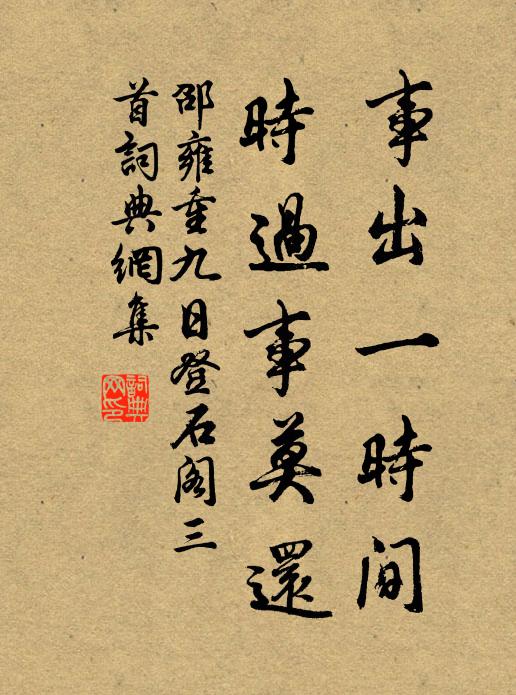 事出一時間
時過事莫還
邵雍重九日登石閣三
首詞典網集
詞典網印